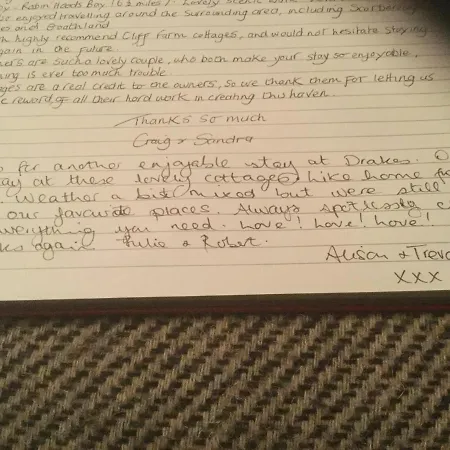 Robin Hoods Bay (6.3 miles). Lovely scenic
enjoyed travelling around the surrounding area, including Scarborough
and Goathland.
highly recommend Cliff Farm cottages, and would not hesitate staying
again in the future.
are such a lovely couple, who both make your stay so enjoyable,
is ever too much trouble.
are a real credit to the owners, so we thank them for letting us
reward of all their hard work in creating this haven.
Thanks so much
Craig & Sandra
for another enjoyable stay at Drakes.
at these lovely cottages Like home
Weather a bit mixed but were still
our favourite places. Always spotlessly
everything you need. Love! Love! Love!
again Julie & Robert.
Alison & Trev
xxx